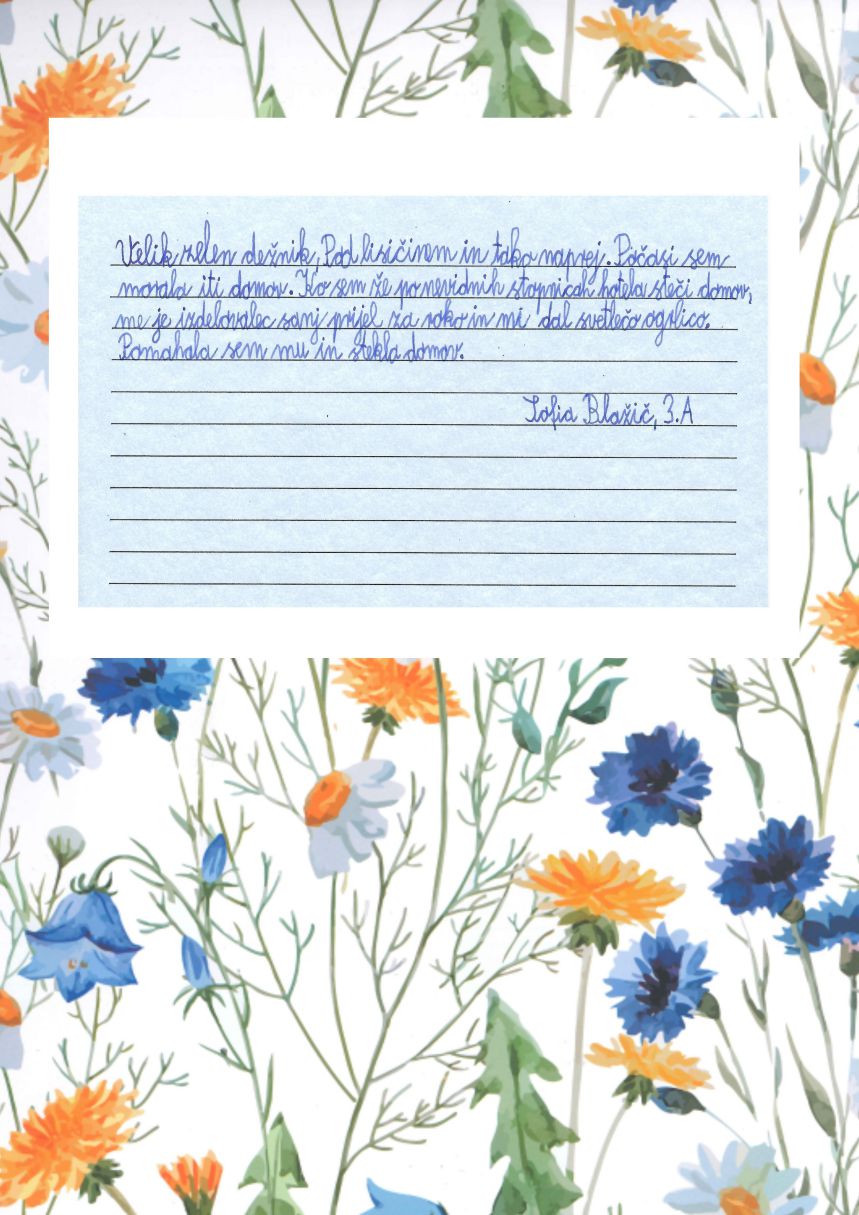 Velik zelen dežnik, Pod lisičinem in tako naprej. Počasi sem
morala iti domov. Ko sem že po nevidnih stopnicah hotela steči domov,
me je izdelovalec sanj prijel za roko in mi dal svetlečo ogrlico.
Pomahala sem mu in stekla domov.
Sofia Blažič, 3.A